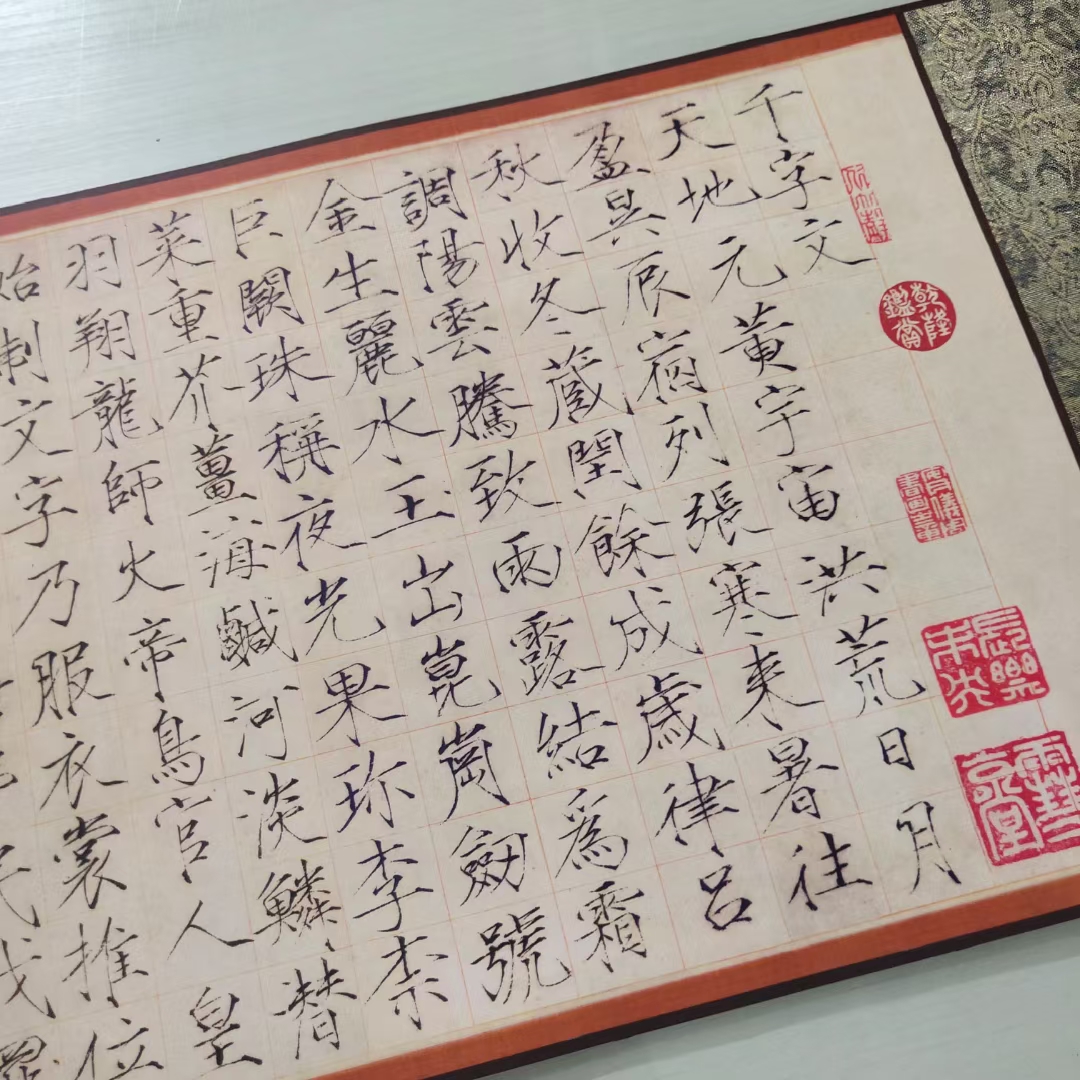 千字文
天地元黄宇宙洪荒日月
盈昃辰宿列張寒来暑往
秋收冬蔵閏餘成歳律吕
調陽雲騰致雨露結爲霜
金生麗水玉山崑崗劔號
巨闕珠稱夜光果珎李柰
菜重芥薑海鹹河淡鱗潛
羽翔龍師火帝鳥官人皇
始制文字乃服衣裳推位
民伐罪
乾隆鑑賞
長樂未央